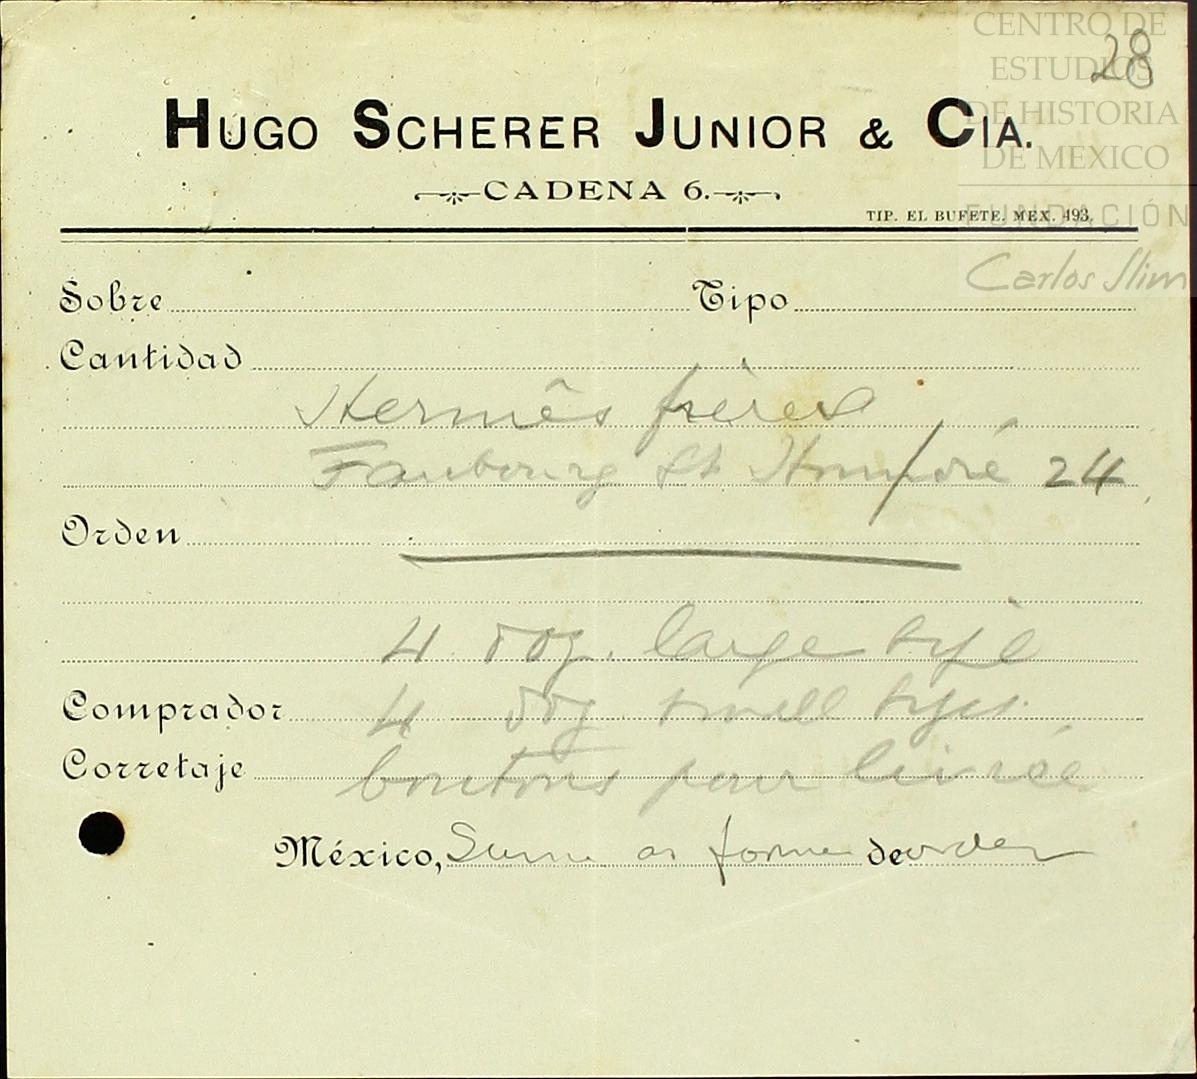 CENTRO DE
ESTUDIOS
DE HISTORIA
DE MEXICO
FUNDACIÓN
Carlos Slim
28
HUGO SCHERER JUNIOR & CIA.
CADENA 6.
TIP. EL BUFETE. MEX. 493.
Sobre Tipo
Cantidad
Hermês frères
Faubourg St Honoré 24
Orden
4 doz. large
Comprador 4 doz small
Corretaje boutons pour livrée
México, Same as former de order